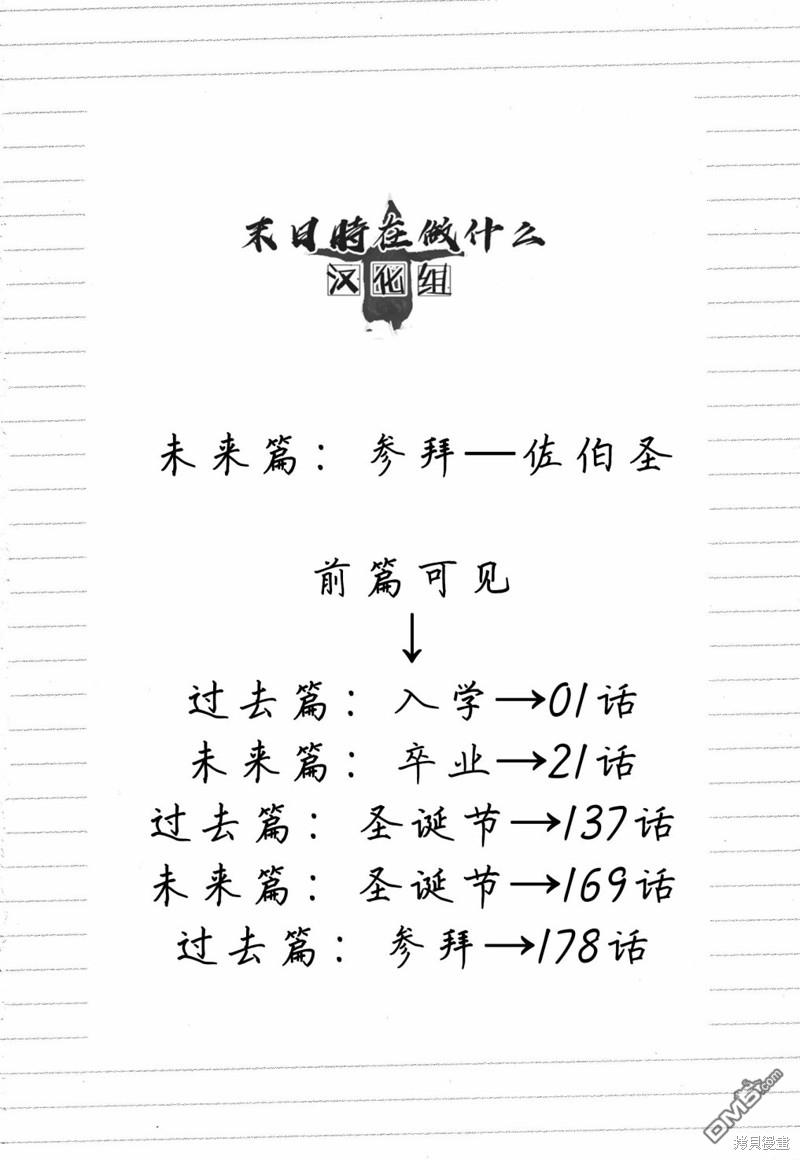 末日時在做什么
汉化组
未来篇：参拜—佐伯圣
前篇可见
↓
过去篇：入学→01话
未来篇：卒业→21话
过去篇：圣诞节→137话
未来篇：圣诞节→169话
过去篇：参拜→178话
DM5.com
拷貝漫畫